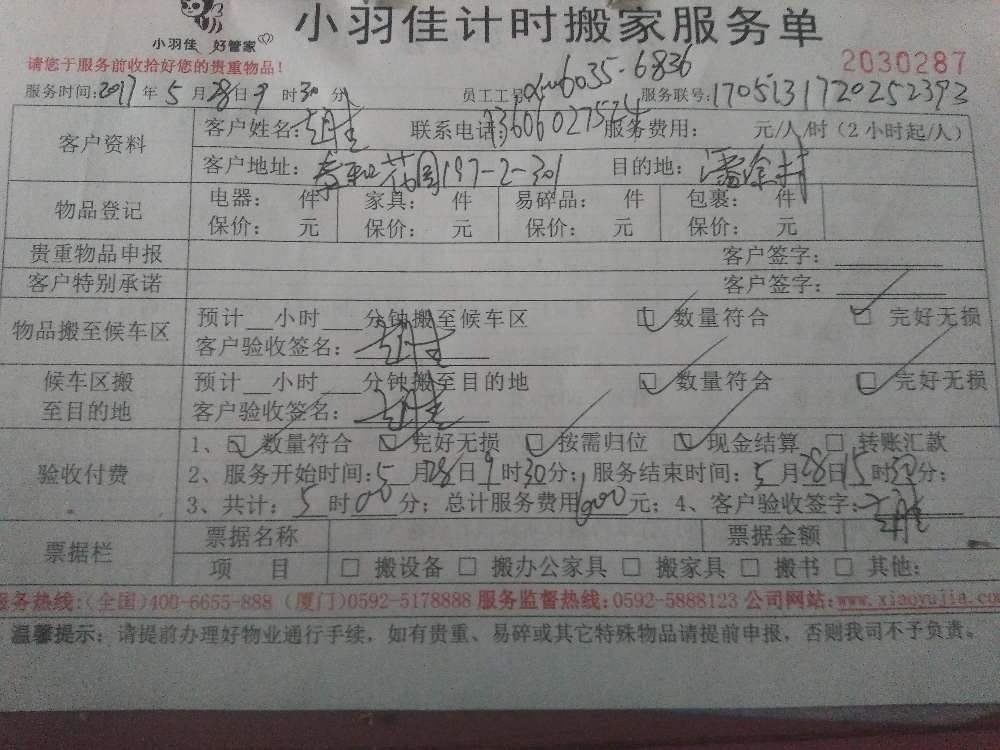 小羽佳计时搬家服务单
小羽佳 好管家
请您于服务前收拾好您的贵重物品! 2030287
服务时间:2017年5月28日9时30分 员工工号 6035-6836 服务联号:1705131720252393
客户资料 客户姓名: 联系电话:13606027524 服务费用: 元/人/时(2小时起/人)
客户地址: 花园197-2-301 目的地:潘涂村
物品登记 电器: 件 家具: 件 易碎品: 件 包裹: 件
保价: 元 保价: 元 保价: 元 保价: 元
贵重物品申报 客户签字:
客户特别承诺 客户签字:
物品搬至候车区 预计__小时___分钟搬至候车区 数量符合 完好无损
客户验收签名:
候车区搬至目的地 预计__小时___分钟搬至目的地 数量符合 完好无损
客户验收签名:
验收付费 1、数量符合 完好无损 按需归位 现金结算 转账汇款
2、服务开始时间:5月28日9时30分;服务结束时间:5月28日15时30分;
3、共计:5时00分;总计服务费用1600元;4、客户验收签字:
票据栏 票据名称 票据金额
项 目 □ 搬设备 □ 搬办公家具 □ 搬家具 □ 搬书 □ 其他:
服务热线:(全国)400-6655-888 (厦门)0592-5178888 服务监督热线:0592-5888123 公司网站:www.xiaoyujia.co
温馨提示:请提前办理好物业通行手续,如有贵重、易碎或其它特殊物品请提前申报,否则我司不予负责。